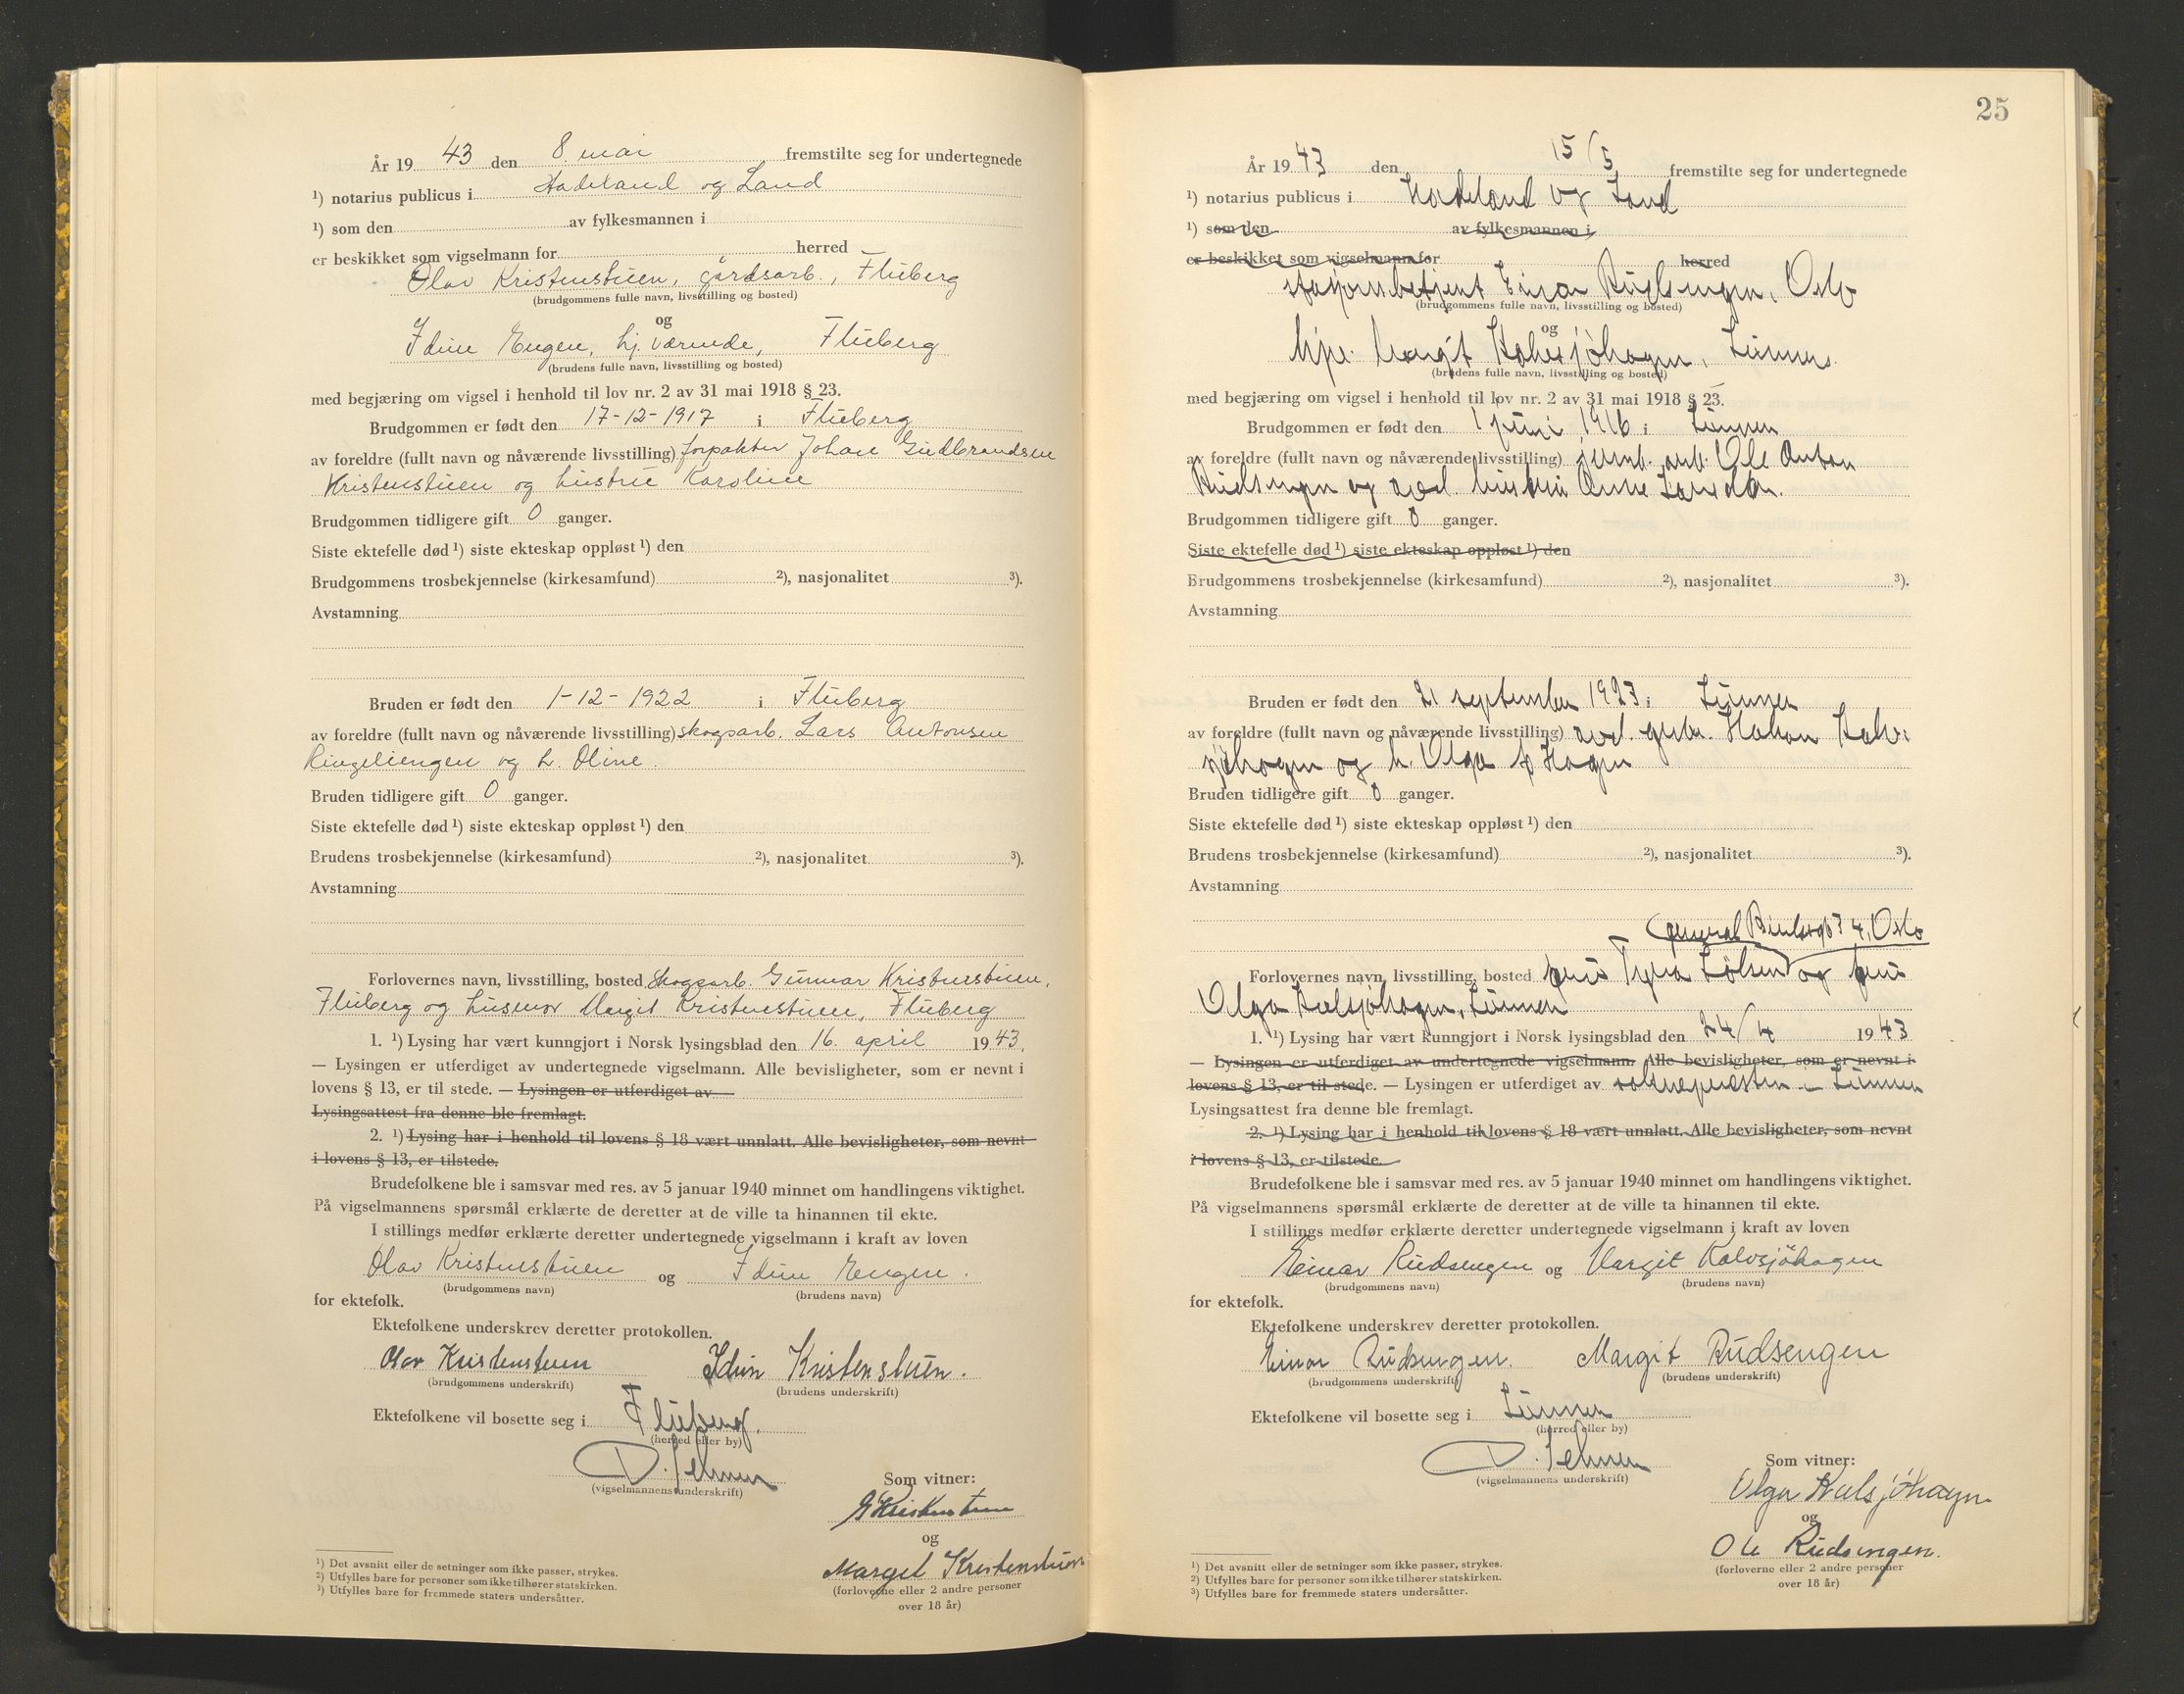 År 19 43 den 8. mai fremstilte seg for undertegnede
¹) notarius publicus i Hadeland og Land
¹) som den av fylkesmannen i
er beskikket som vigselmann for herred
Olav Kristenstuen, gårdsarb., Fluberg
(brudgommens fulle navn, livsstilling og bosted)
og
Idun Engen, hj. værende, Fluberg
(brudens fulle navn, livsstilling og bosted)
med begjæring om vigsel i henhold til lov nr. 2 av 31 mai 1918 § 23.
Brudgommen er født den 17-12-1917 i Fluberg
av foreldre (fullt navn og nåværende livsstilling) forpakter Johan Gudbrandsen
Kristenstuen og hustru Karoline
Brudgommen tidligere gift 0 ganger.
Siste ektefelle død ¹) siste ekteskap oppløst ¹) den
Brudgommens trosbekjennelse (kirkesamfund) ²), nasjonalitet ³).
Avstamning
Bruden er født den 1-12-1922 i Fluberg
av foreldre (fullt navn og nåværende livsstilling) skogsarb. Lars Antonsen
Ringeliengen og h. Oline.
Bruden tidligere gift 0 ganger.
Siste ektefelle død ¹) siste ekteskap oppløst ¹) den
Brudens trosbekjennelse (kirkesamfund) ²), nasjonalitet ³).
Avstamning
Forlovernes navn, livsstilling, bosted Skogsarb. Gunnar Kristenstuen,
Fluberg og husmor Margit Kristenstuen, Fluberg
1. ¹) Lysing har vært kunngjort i Norsk lysingsblad den 16. april 19 43.
— Lysingen er utferdiget av undertegnede vigselmann. Alle bevisligheter, som er nevnt i
lovens § 13, er til stede. — Lysingen er utferdiget av
Lysingsattest fra denne ble fremlagt.
2. ¹) Lysing har i henhold til lovens § 18 vært unnlatt. Alle bevisligheter, som nevnt
i lovens § 13, er tilstede.
Brudefolkene ble i samsvar med res. av 5 januar 1940 minnet om handlingens viktighet.
På vigselmannens spørsmål erklærte de deretter at de ville ta hinannen til ekte.
I stillings medfør erklærte deretter undertegnede vigselmann i kraft av loven
Olav Kristenstuen og Idun Engen.
(brudgommens navn) (brudens navn)
for ektefolk.
Ektefolkene underskrev deretter protokollen.
Olav Kristenstuen Idun Kristenstuen.
(brudgommens underskrift) (brudens underskrift)
Ektefolkene vil bosette seg i Fluberg.
(herred eller by)
(vigselmannens underskrift)
Som vitner:
G Kristenstuen
og
Margit Kristenstuen
(forloverne eller 2 andre personer
over 18 år)
¹) Det avsnitt eller de setninger som ikke passer, strykes.
²) Utfylles bare for personer som ikke tilhører statskirken.
³) Utfylles bare for fremmede staters undersåtter.
25
År 19 43 den 15/5 fremstilte seg for undertegnede
¹) notarius publicus i Hadeland og Land
¹) som den av fylkesmannen i
er beskikket som vigselmann for herred
stasjonsbetjent Einar Rudsengen, Oslo
(brudgommens fulle navn, livsstilling og bosted)
og
Margit Kalvsjøhagen, Lunner
(brudens fulle navn, livsstilling og bosted)
med begjæring om vigsel i henhold til lov nr. 2 av 31 mai 1918 § 23.
Brudgommen er født den 1 juni 1916 i Lunner
av foreldre (fullt navn og nåværende livsstilling) jernb. arb. Ole Anton
Rudsengen og avd. hustru Anne
Brudgommen tidligere gift 0 ganger.
Siste ektefelle død ¹) siste ekteskap oppløst ¹) den
Brudgommens trosbekjennelse (kirkesamfund) ²), nasjonalitet ³).
Avstamning
Bruden er født den 21 september 1923 i Lunner
av foreldre (fullt navn og nåværende livsstilling) avd. gbr. Håkon Kalv-
sjøhagen og h. Olga f Hagen
Bruden tidligere gift 0 ganger.
Siste ektefelle død ¹) siste ekteskap oppløst ¹) den
Brudens trosbekjennelse (kirkesamfund) ²), nasjonalitet ³).
Avstamning
General Oslo
Forlovernes navn, livsstilling, bosted fru og fru
Olga Kalvsjøhagen, Lunner
1. ¹) Lysing har vært kunngjort i Norsk lysingsblad den 24/4 19 43
— Lysingen er utferdiget av undertegnede vigselmann. Alle bevisligheter, som er nevnt i
lovens § 13, er til stede. — Lysingen er utferdiget av soknepresten i Lunner
Lysingsattest fra denne ble fremlagt.
2. ¹) Lysing har i henhold til lovens § 18 vært unnlatt. Alle bevisligheter, som nevnt
i lovens § 13, er tilstede.
Brudefolkene ble i samsvar med res. av 5 januar 1940 minnet om handlingens viktighet.
På vigselmannens spørsmål erklærte de deretter at de ville ta hinannen til ekte.
I stillings medfør erklærte deretter undertegnede vigselmann i kraft av loven
Einar Rudsengen og Margit Kalvsjøhagen
(brudgommens navn) (brudens navn)
for ektefolk.
Ektefolkene underskrev deretter protokollen.
Einar Rudsengen. Margit Rudsengen
(brudgommens underskrift) (brudens underskrift)
Ektefolkene vil bosette seg i Lunner
(herred eller by)
(vigselmannens underskrift)
Som vitner:
Olga Kalvsjøhagen
og
Ole Rudsengen.
(forloverne eller 2 andre personer
over 18 år)
¹) Det avsnitt eller de setninger som ikke passer, strykes.
²) Utfylles bare for personer som ikke tilhører statskirken.
³) Utfylles bare for fremmede staters undersåtter.